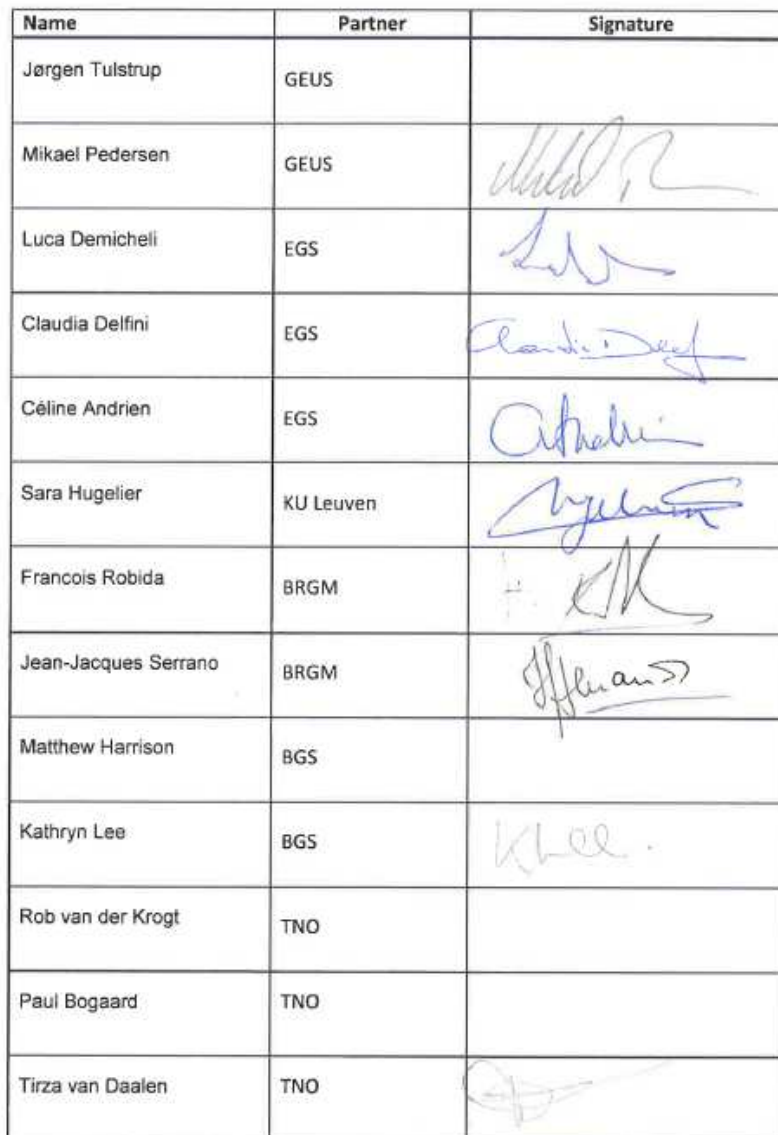 Name Partner Signature
Jørgen Tulstrup GEUS
Mikael Pedersen GEUS
Luca Demicheli EGS
Claudia Delfini EGS
Céline Andrien EGS
Sara Hugelier KU Leuven
Francois Robida BRGM
Jean-Jacques Serrano BRGM
Matthew Harrison BGS
Kathryn Lee BGS
Rob van der Krogt TNO
Paul Bogaard TNO
Tirza van Daalen TNO